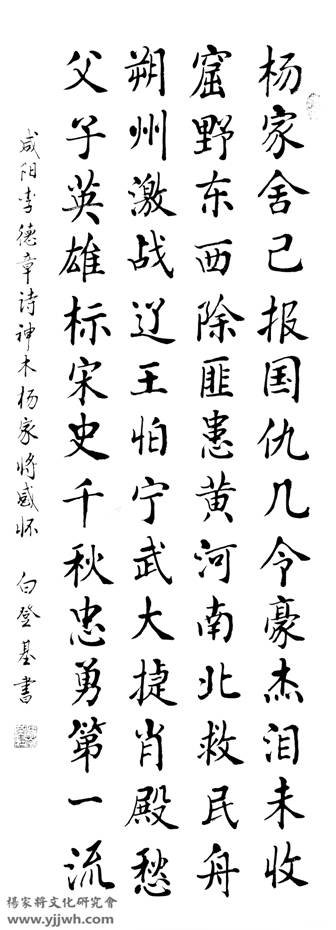 杨家舍己报国仇几令豪杰泪未收
窟野东西除匪患黄河南北救民舟
朔州激战辽王怕宁武大捷肖殿愁
父子英雄标宋史千秋忠勇第一流
咸阳李德章诗神木杨家将感怀 白登基书
楊家將文化研究會
www.yjjwh.com